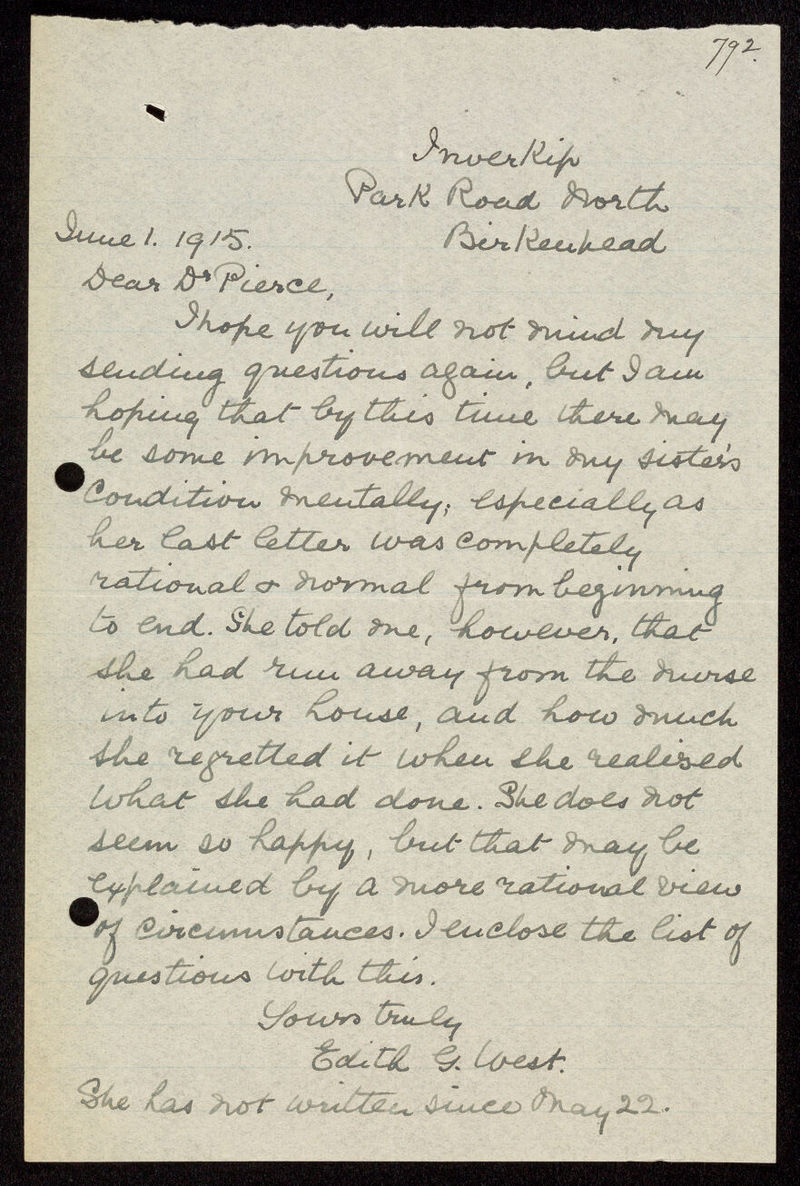 792.
Inverkip
Park Road North
June 1. 1915.
Birkenhead
Dear Dr Pierce,
I hope you will not mind my
sending questions again, but I am
hoping that by this time there may
be some improvement in my sister's
condition mentally; especially as
her last letter was completely
rational & normal from beginning
to end. She told me, however, that
she had run away from the nurse
into your house, and how much
she regretted it when she realised
what she had done. She does not
seem so happy, but that may be
explained by a more rational view
of circumstances. I enclose the list of
questions with this.
Yours truly
Edith G. West.
She has not written since May 22.